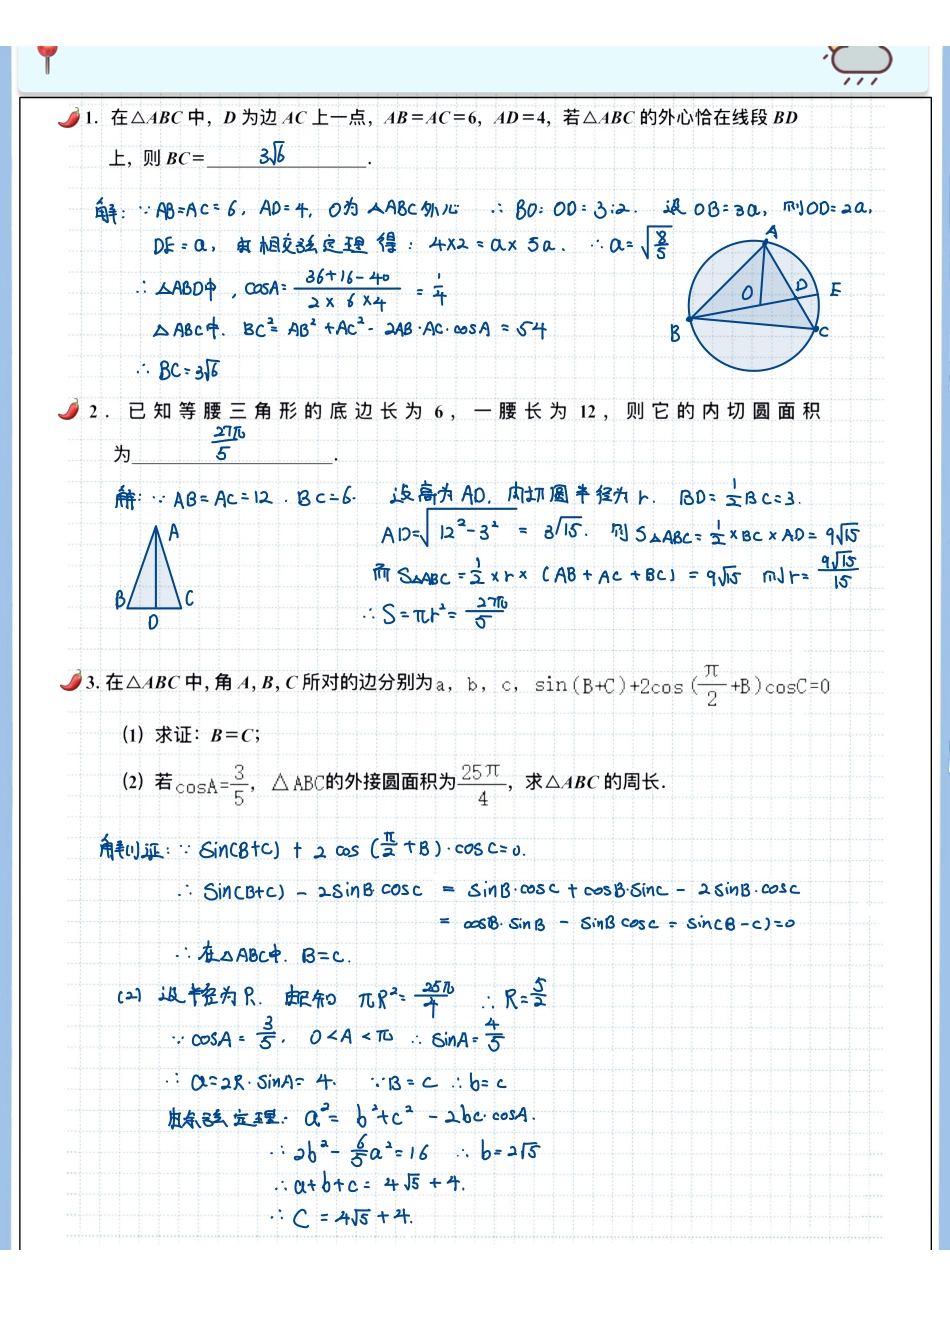 1. 在△ABC 中，D 为边 AC 上一点，AB=AC=6，AD=4，若△ABC 的外心恰在线段 BD
上，则 BC=3√6.
解：∵AB=AC=6，AD=4，O为△ABC外心 ∴BO:OD=3:2. 设OB=3a，则OD=2a，
DE=a，由相交弦定理得：4×2=a×5a. ∴a=√(8/5)
∴△ABD中，cosA=(36+16-40)/(2×6×4)=1/4
△ABC中. BC²=AB²+AC²-2AB·AC·cosA=54
∴BC=3√6
A
O
D
E
B
C
2. 已知等腰三角形的底边长为 6，一腰长为 12，则它的内切圆面积
为27π/5.
解：∵AB=AC=12. BC=6. 设高为AD. 内切圆半径为r. BD=1/2BC=3.
AD=√(12²-3²)=3√15. 则S△ABC=1/2×BC×AD=9√15
而S△ABC=1/2×r×(AB+AC+BC)=9√15 则r=9√15/15
∴S=πr²=27π/5
A
B
C
D
3. 在△ABC 中, 角 A, B, C 所对的边分别为a，b，c，sin(B+C)+2cos(π/2+B)cosC=0
(1) 求证：B=C；
(2) 若cosA=3/5，△ABC的外接圆面积为25π/4，求△ABC 的周长.
解(1)证：∵Sin(B+C)+2cos(π/2+B)·cosC=0.
∴Sin(B+C)-2SinBcosC=SinB·cosC+cosB·SinC-2SinB·cosC
=cosB·SinB-SinBcosC=Sin(B-C)=0
∴在△ABC中. B=C.
(2) 设半径为R. 由已知πR²=25π/4 ∴R=5/2
∵cosA=3/5. 0<A<π ∴SinA=4/5
∴a=2R·SinA=4. ∵B=C ∴b=c
由余弦定理：a²=b²+c²-2bc·cosA.
∴2b²-6/5a²=16 ∴b=2√5
∴a+b+c=4√5+4.
∴C=4√5+4.